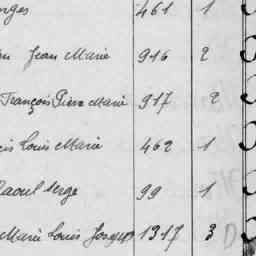 rges 461 1
Jean Marie 916 2
François Pierre Marie 917 2
is Louis Marie 462 1
Raoul Serge 99 1
Marie Louis Joseph 1317 3 D